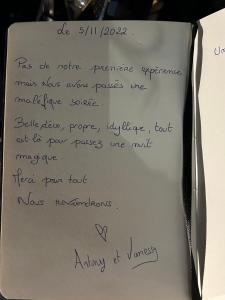 Le 5/11/2022.
Pas de notre première expérience
mais Nous avons passés une
maléfique soirée.
Belle déco, propre, idyllique, tout
est là pour passez une nuit
magique.
Merci pour tout.
Nous reviendrons.
Antony et Vanessa